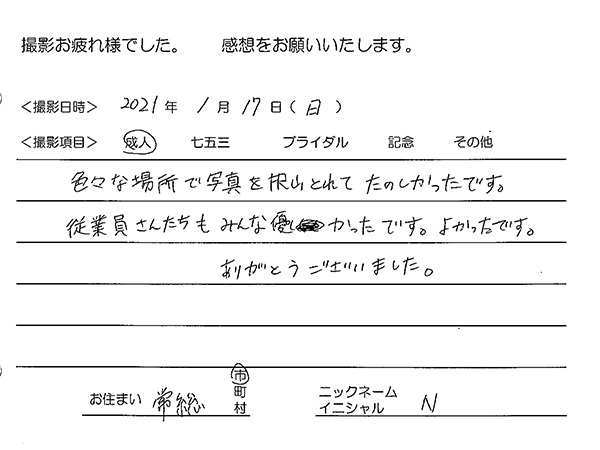 撮影お疲れ様でした。 感想をお願いいたします。
＜撮影日時＞ 2021年 1月 17日（日）
＜撮影項目＞ 成人 七五三 ブライダル 記念 その他
色々な場所で写真を沢山とれてたのしかったです。
従業員さんたちもみんな優しかったです。よかったです。
ありがとうございました。
お住まい 常総 市町村 ニックネーム イニシャル N